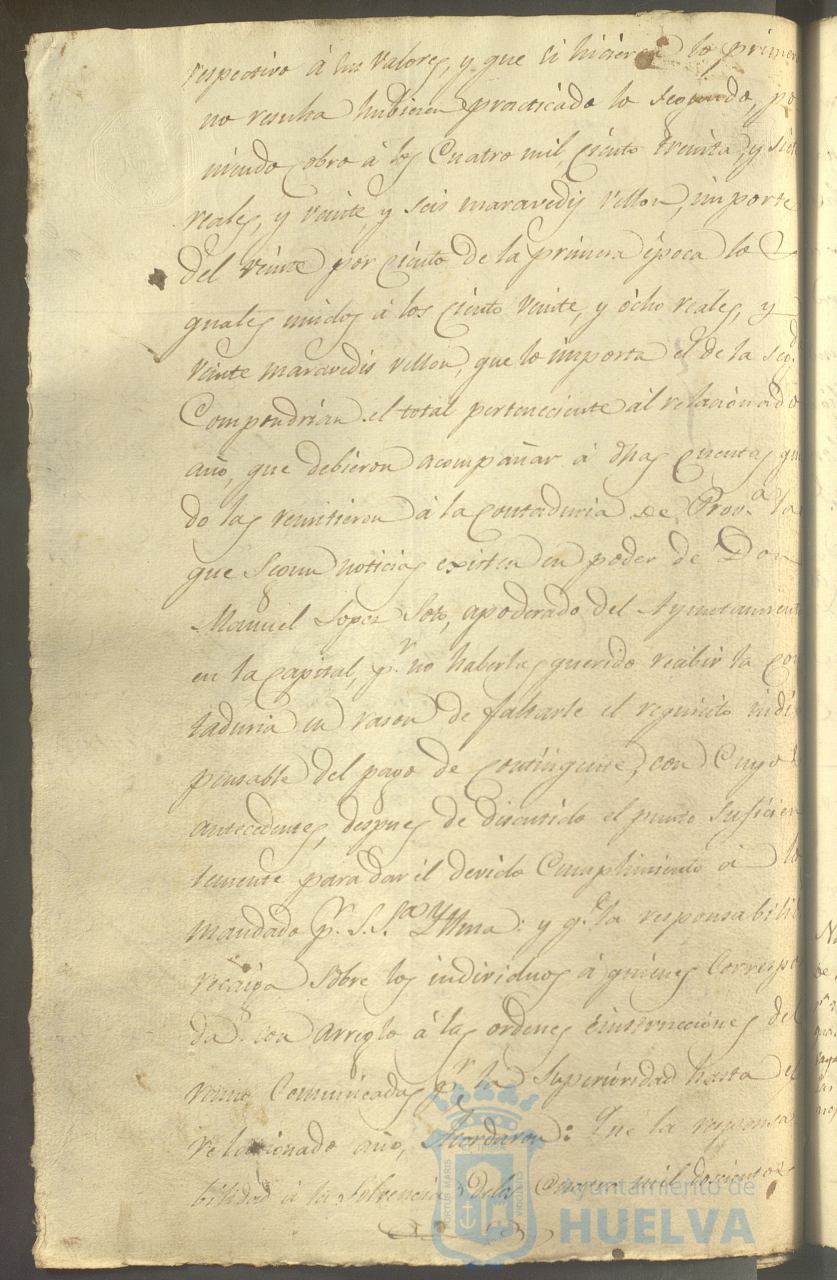 respectivo á sus valores, y que si hicieron lo primero
no resulta hubieren practicado lo segundo, po
niendo cobro á los Cuatro mil, ciento treinta, y siete
reales, y veinte y seis maravedis vellon, importe
del veinte por ciento de la primera época lo
quales unidos á los ciento veinte, y ócho reales, y
veinte maravedis vellon, que lo importa el de la seg.da
Compondrian el total perteneciente ál relacionado
año, que debieron acompañar á dhas Cuentas quan
do las remitieron á la Contaduria de Prov.a las
que segun noticias existen en poder de Don
Manuel Lopez Soto, apoderado del Ayuntamiento
en la Capital, p.r no haberlas querido recibir la Con
taduria en rason de faltarle el requisito indis
pensable del pago de Contingente, con Cuyos
antecedentes, despues de discutido el punto suficien
temente para dar él devido Cumplimiento á lo
mandado p.r S.S.a Yllma: y q.e la responsabilid
recaiga sobre los individuos á quienes correspon
da con arreglo á las ordenes é instrucciones del
ramo Comunicadas p.r la Superioridad hasta el
relacionado año, Acordaron: Que la responsa
bilidad á la Solvencia de los Cuatro mil docientos
Ayuntamiento de
HUELVA
PORTUS MARIS